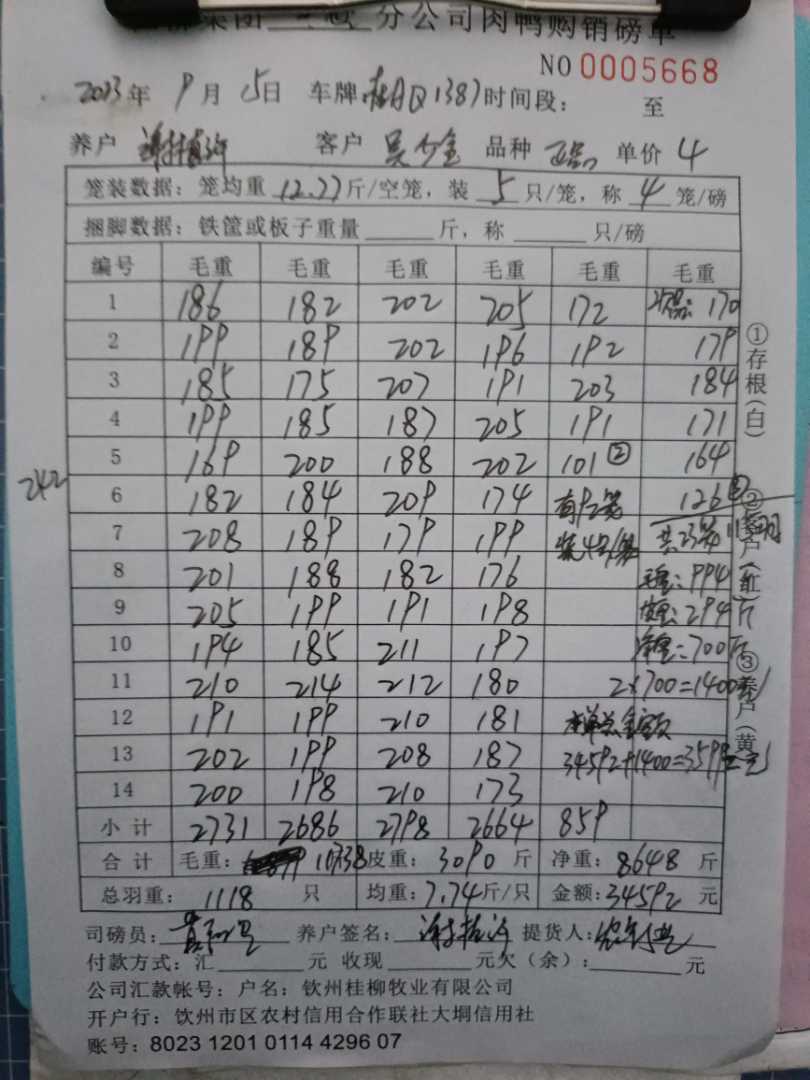 分公司肉鸭购销磅单
NO 0005668
2023年 9月 15日 车牌 桂AQ1387 时间段: 至
养户 客户 吴 金 品种 单价 4
笼装数据: 笼均重 12.77 斤/空笼, 装 5 只/笼, 称 4 笼/磅
捆脚数据: 铁筐或板子重量 斤, 称 只/磅
编号 毛重 毛重 毛重 毛重 毛重 毛重
1 186 182 202 205 172 次品: 170
2 199 189 202 196 192 179
3 185 175 207 191 203 184
4 199 185 187 205 191 171
5 169 200 188 202 101② 164
242
6 182 184 209 174 有 笼 126
7 208 189 179 199 装4只/笼 共23笼
8 201 188 182 176 毛重: 994
9 205 199 191 198 皮重: 294斤
10 194 185 211 197 净重: 700斤
11 210 214 212 180 2×700=1400
12 191 199 210 181 本单总金额
13 202 199 208 187 34592+1400=3599 元
14 200 198 210 173
小计 2731 2686 2798 2664 859
合计 毛重: 10738 皮重: 3090 斤 净重: 8648 斤
总羽重: 1118 只 均重: 7.74 斤/只 金额: 34592 元
司磅员: 养户签名: 提货人:
付款方式: 汇 元 收现 元欠(余): 元
公司汇款帐号: 户名: 钦州桂柳牧业有限公司
开户行: 钦州市区农村信用合作联社大垌信用社
账号: 8023 1201 0114 4296 07
①存根(白)
②客户(红)
③养户(黄